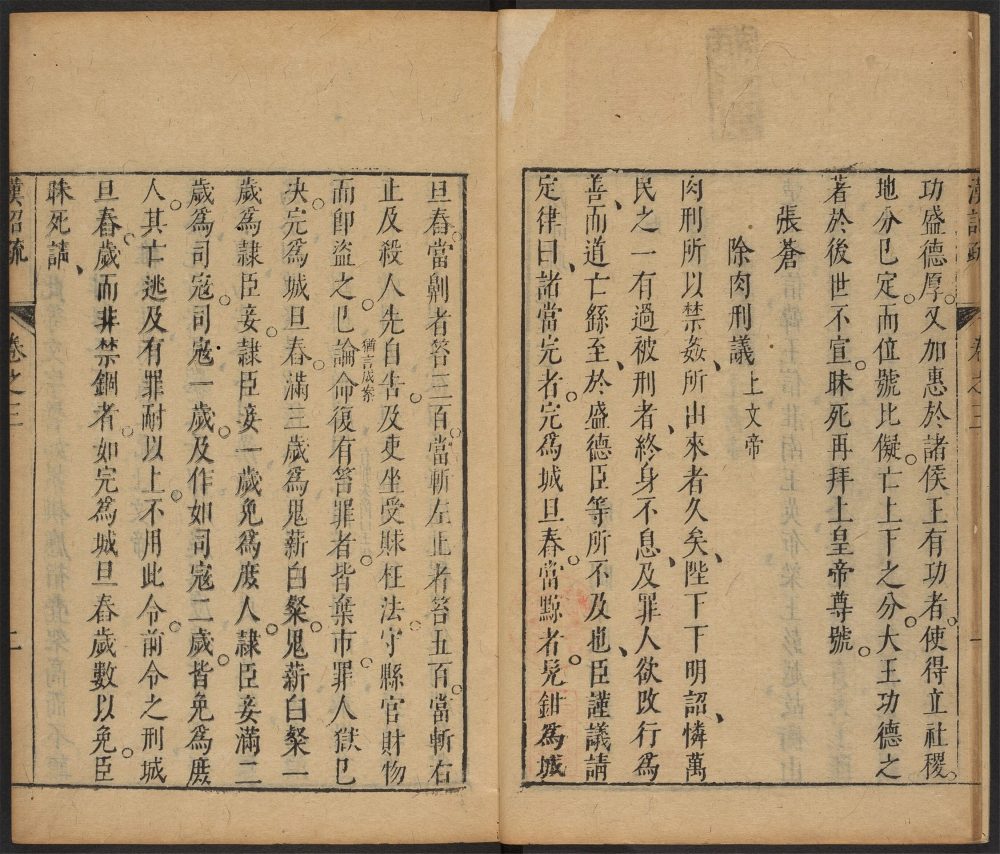 漢詔疏 卷之三 一
功盛德厚又加惠於諸侯王有功者使得立社稷
地分已定而位號比儗亡上下之分大王功德之
著於後世不宣昧死再拜上皇帝尊號
張蒼
除肉刑議 上文帝
肉刑所以禁姦所由來者久矣陛下下明詔憐萬
民之一有過被刑者終身不息及罪人欲改行爲
善而道亡繇至於盛德臣等所不及也臣謹議請
定律曰諸當完者完爲城旦舂當黥者髡鉗爲城
旦舂當劓者笞三百當斬左止者笞五百當斬右
止及殺人先自告及吏坐受賕枉法守縣官財物
而卽盜之已論命 猶言成案 復有笞罪者皆棄市罪人獄已
決完爲城旦舂滿三歲爲鬼薪白粲鬼薪白粲一
歲爲隸臣妾隸臣妾一歲免爲庶人隸臣妾滿二
歲爲司寇司寇一歲及作如司寇二歲皆免爲庶
人其亡逃及有罪耐以上不用此令前令之刑城
旦舂歲而非禁錮者如完爲城旦舂歲數以免臣
昧死請
漢詔疏 卷之三 二